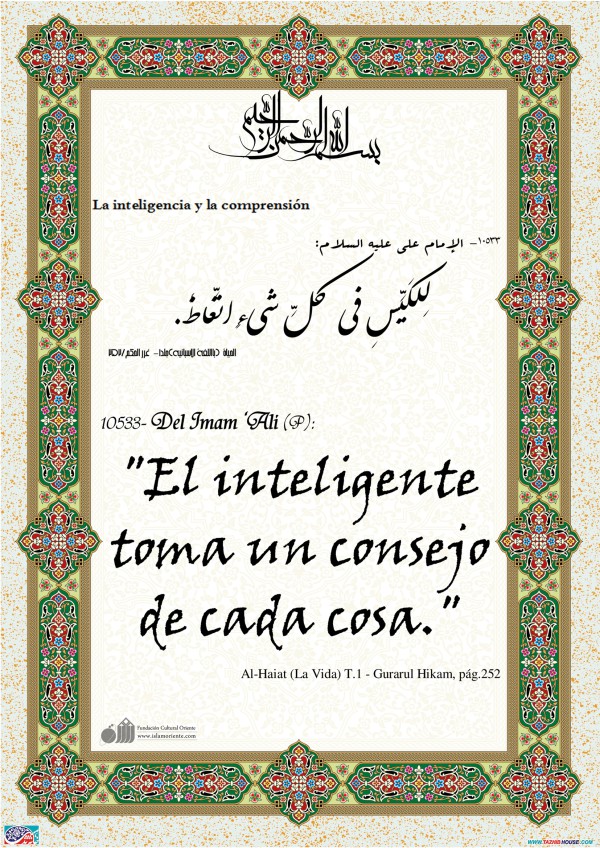 بسم الله الرحمن الرحيم
La inteligencia y la comprensión
۱۰۵۳۳- الإمام علي عليه السلام:
لِلكَيِّسِ في كلّ شيء اتّعاظ.
10533- Del Imam ‘Ali (P):
"El inteligente
toma un consejo
de cada cosa."
Al-Haiat (La Vida) T.1 - Gurarul Hikam, pág.252
Fundación Cultural Oriente
www.islamoriente.com
WWW.TAZHIBHOUSE.COM